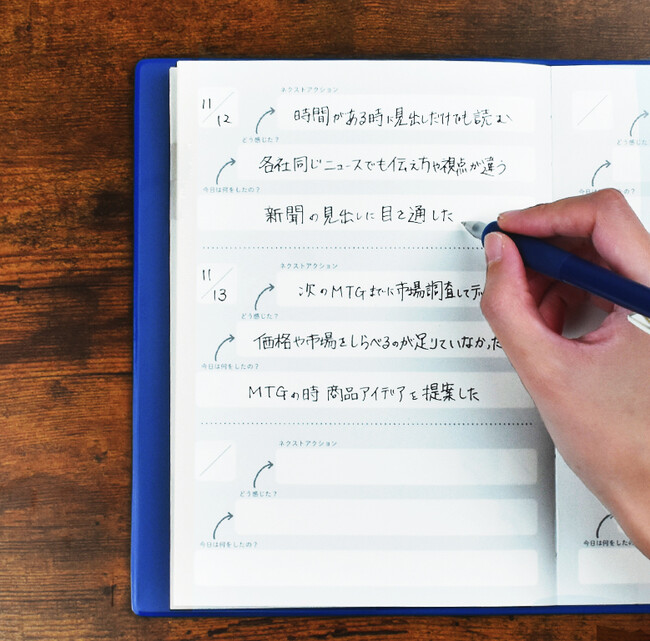 ネクストアクション
11/12
時間がある時に見出しだけでも読む
どう感じた？
各社同じニュースでも伝え方や視点が違う
今日は何をしたの？
新聞の見出しに目を通した
ネクストアクション
11/13
次のMTGまでに市場調査して
どう感じた？
価格や市場をしらべるのが足りていなかった
今日は何をしたの？
MTGの時 商品アイデアを提案した
ネクストアクション
どう感じた？
今日は何をしたの？
今日は何をしたの